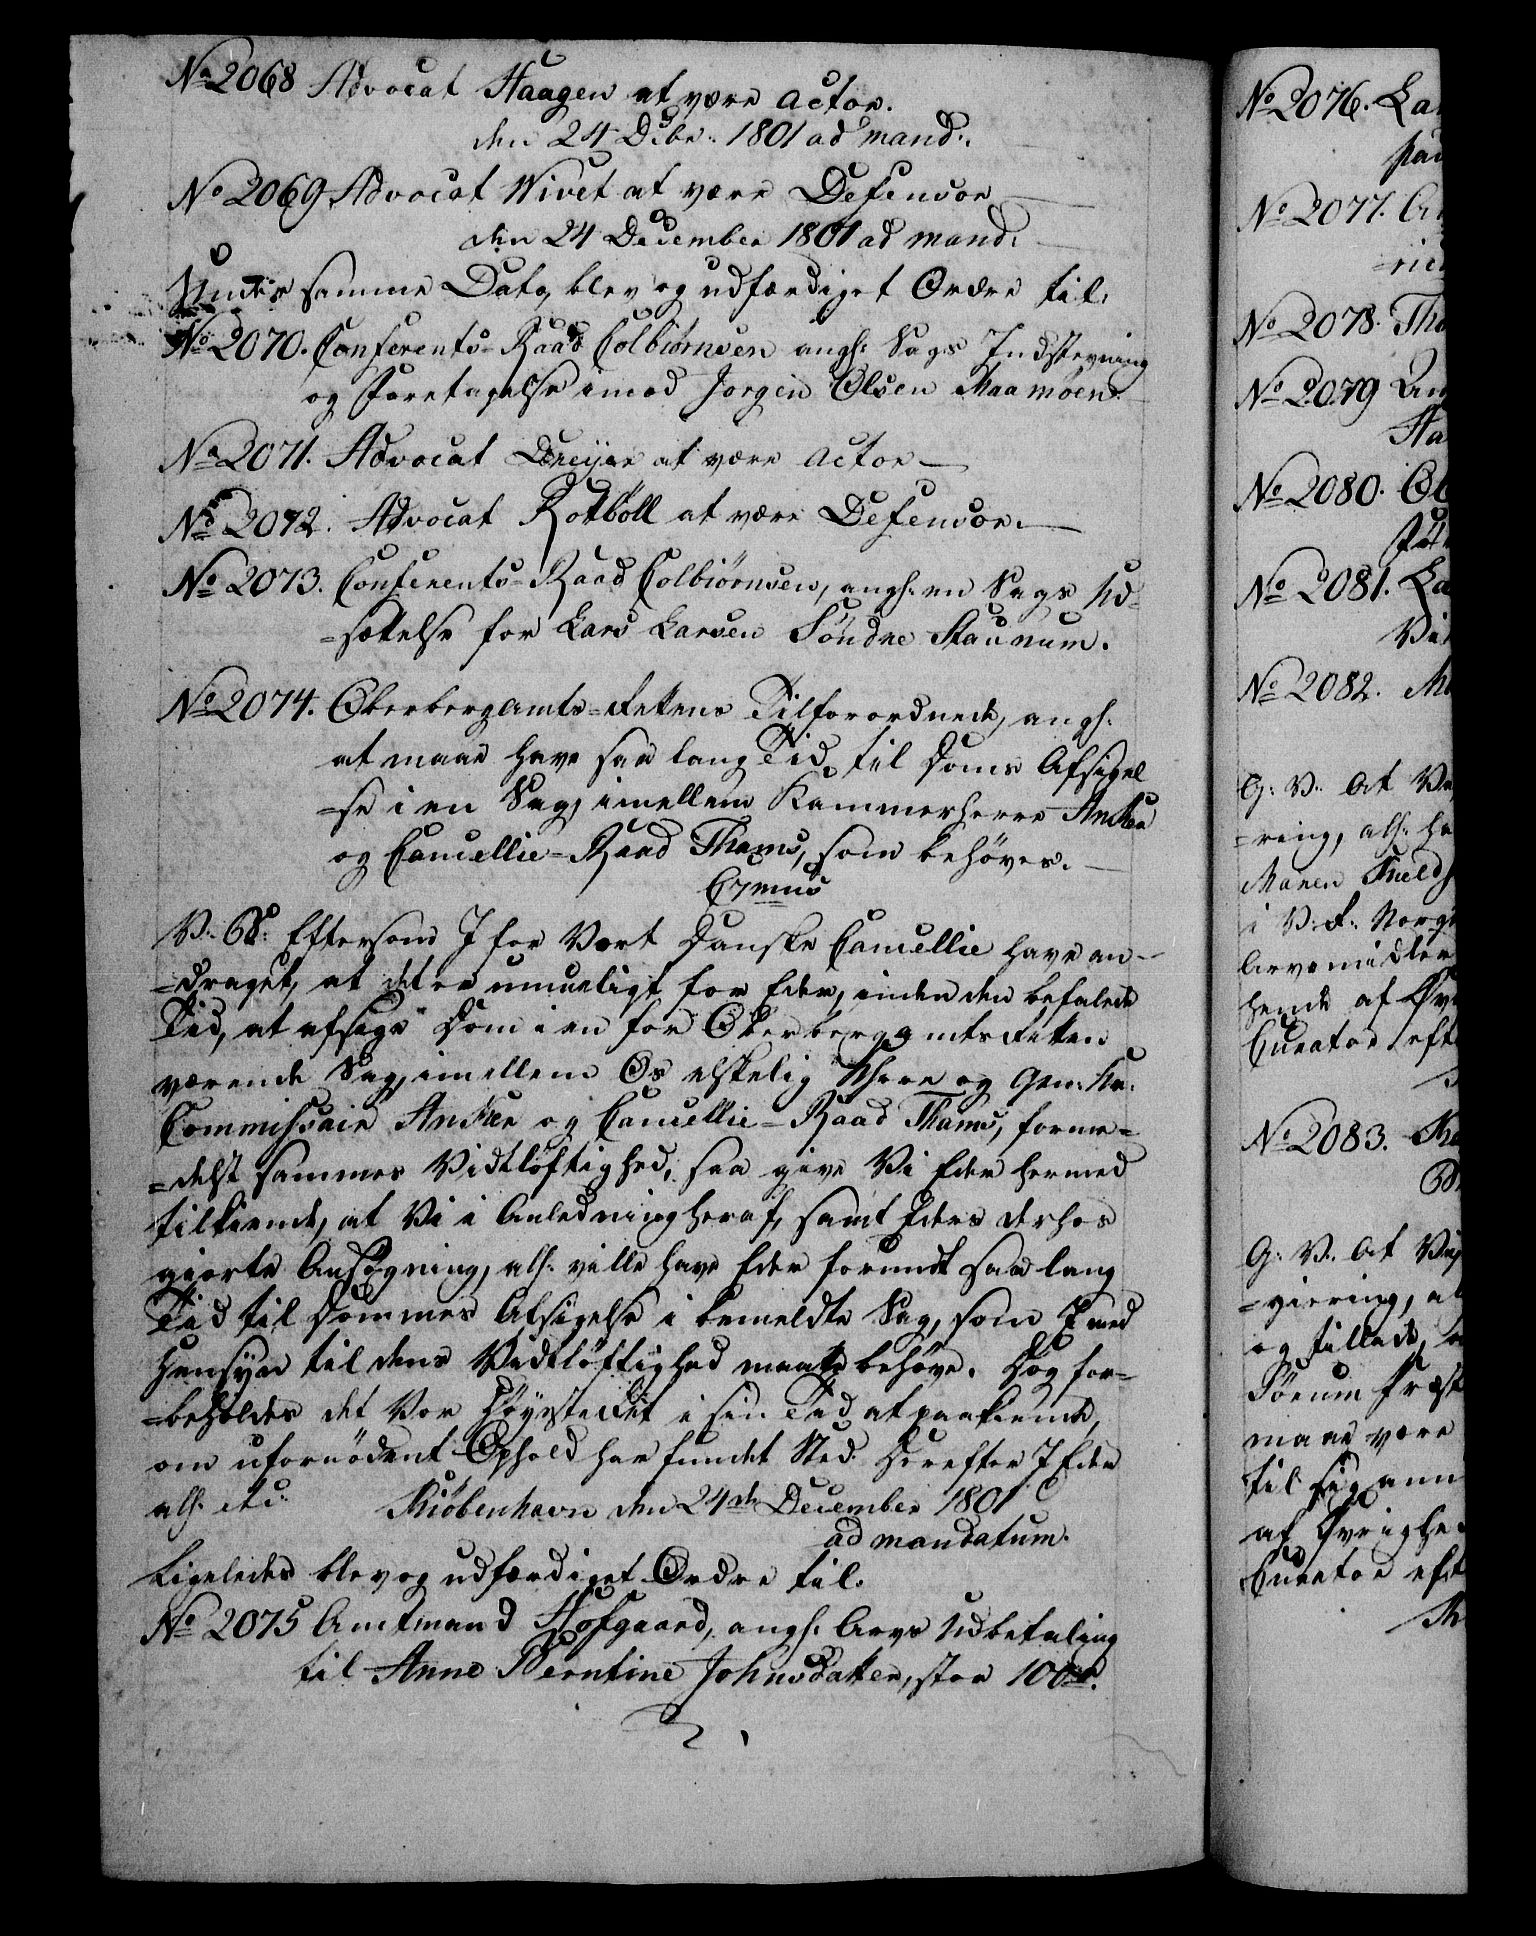 No 2068 Advocat Haagen at være Actor.
den 24 Decbr: 1801 ad mand:
No 2069 Advocat Wivet at være Defensor
den 24 December 1801 ad mand:
Under samme Dato blev og udfærdiget Ordre til:
No 2070. Conferents-Raad Colbiörnsen angh: Sags Indstevning
og Foretagelse imod Jørgen Olsen Maamoen.
No 2071. Advocat Dreijer at være Actor
No 2072. Advocat Rotböll at være Defensor.
No 2073. Conferents-Raad Colbiörnsen, angh: en Sags Ud-
=sættelse for Lars Larsen Söndre Staunum.
No 2074. Oberbergamts-Rettens Tilforordnede, angh:
at maae have saa lang Tid til Doms Afsigel
=se i en Sag, imellem Kammerherre Anker
og Cancellie-Raad Thams, som behøves.
V: G: Eftersom I for Vort Danske Cancellie have an-
=draget, at det er umueligt for Eder, inden den befalede
Tid, at afsige Dom i en for Oberbergamtsretten
værende Sag, imellem Os elskelig Khere og Gen: Kr:
Commissair Anker og Cancellie-Raad Thams, forme=
=delst sammes Vidtløftighed, saa give Vi Eder hermed
tilkiende, at Vi i Anledning heraf, samt Eders derhos
giorte Ansøgning, allr: ville have Eder forundt saa lang
Tid til Dommes Afsigelse i bemeldte Sag, som I med
Hensyn til dens Vidtløftighed maatte behøve. Dog for-
=beholdes det Vor Høyesteret i sin Tid at paakiende,
om ufornødent Ophold har fundet Sted. Derefter I Eder
allr: etc: Kiøbenhavn den 24de December 1801
ad mandatum.
Ligeledes blev og udfærdiget Ordre til:
No 2075 Amtmand Hofgaard, angh: Arvs Udbetaling
til Anne Berntine Johnsdatter, stor 100 rd.
No 2076. La
No 2077.
No 2078. Tho
No 2079
Ha
No 2080. Ol
No 2081. La
No 2082.
G: V: At Vi
=ring, allr: ha
Maren Field
i V: R: Norge
Arvemidler
hende af Øv
Curator eft
No 2083.
G: V: At Vi
=giering, al
og tillade,
Sörum Præst
maae være
til sig ann
af Øvrighe
Curator eft